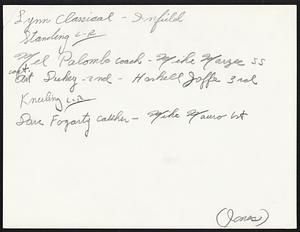 Lynn Classical - Infield
Standing L-R
Mel Palombo coach - Mike Marge SS
capt. Art Duhey - 2nd - Haskell Joffe 3rd
Kneeling L-R
Dave Fogarty catcher - Mike Mauro 1st
(Jones)